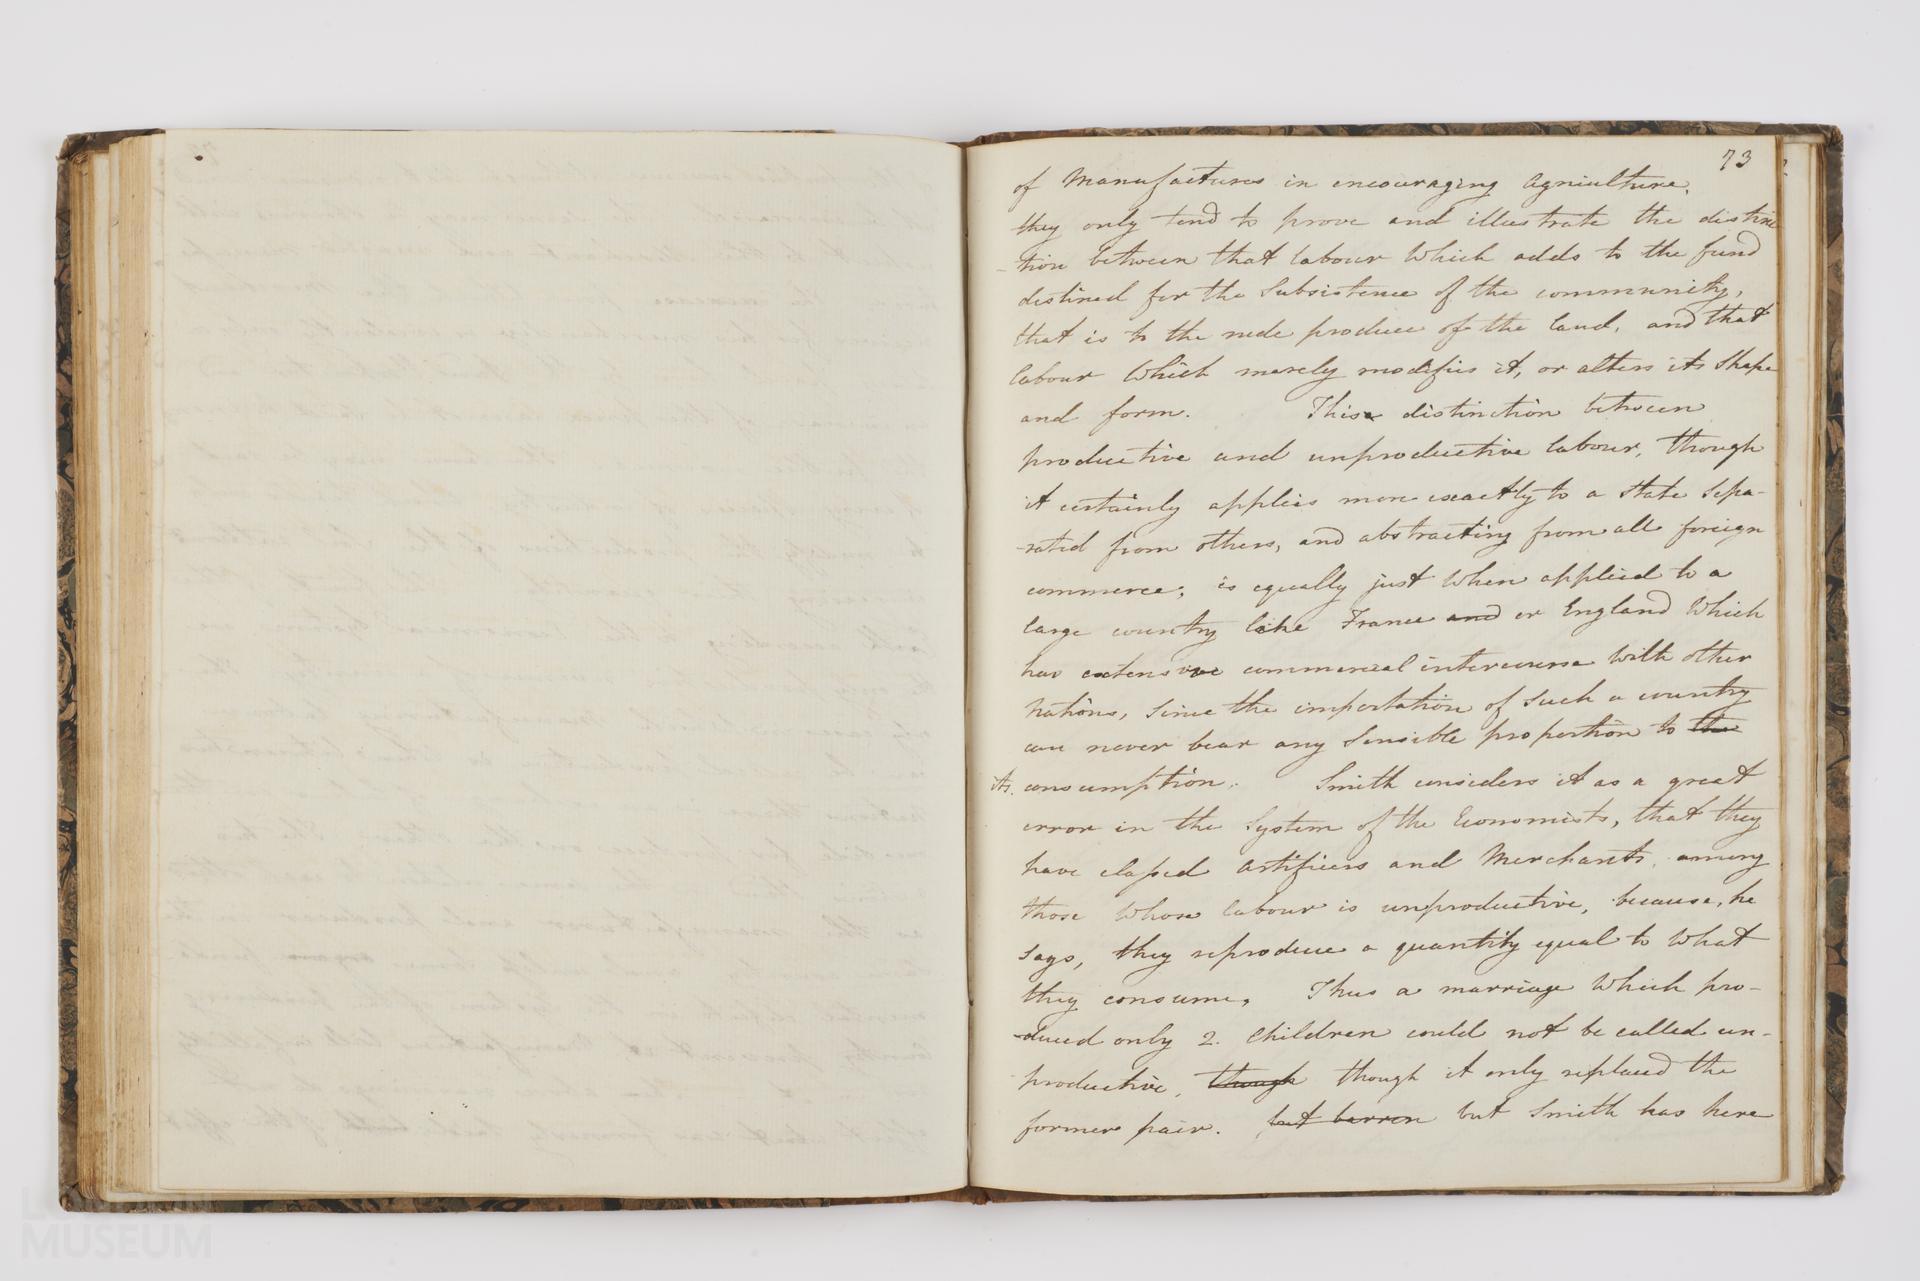 73
of Manufactures in encouraging Agriculture,
they only tend to prove and illustrate the distinc
-tion between that labour Which adds to the fund
destined for the Subsistence of the community,
that is to the rude produce of the land, and that
labour Which merely modifies it, or alters its Shape
and form. This distinction between
productive and unproductive labour, though
it certainly applies more exactly to a State Sepa-
-rated from others, and abstracting from all foreign
commerce, is equally just When applied to a
large country like France and or England Which
has extensive commercial intercourse With other
Nations, Since the importation of Such a country
can never bear any Sensible proportion to the
its. consumption. Smith considers it as a great
error in the System of the Economists, that they
have classed Artificers and Merchants, among
those Whose labour is unproductive, because, he
Says, they reproduce a quantity equal to What
they consume. Thus a marriage Which pro-
-duced only 2. Children could not be called un-
productive, though though it only replaced the
former pair. but barren but Smith has here
LONDON
MUSEUM